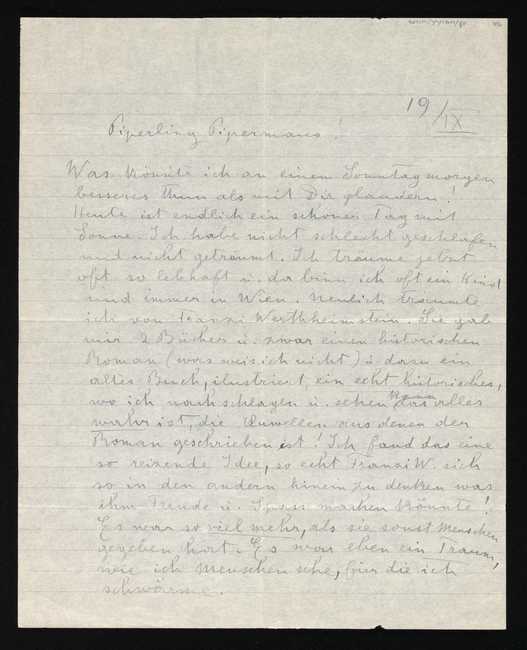 19/IX
Piperling Pipermaus!
Was könnte ich an einem Sonntagmorgen
besseres thun als mit Dir plaudern!
Heute ist endlich ein schöner Tag mit
Sonne. Ich habe nicht schlecht geschlafen
und nicht geträumt. Ich träume jetzt
oft so lebhaft u. da binn ich oft ein Kind
und immer in Wien. Neulich träumte
ich von Franzi Werthheimstein. Sie gab
mir 2 Bücher u. zwar einen historischen
Roman (was weis ich nicht) u. dazu ein
altes Buch, ilustriert, ein echt historisches,
wo ich nachschlagen u. sehen kann das alles
wahr ist, die Quwellen aus denen der
Roman geschrieben ist! Ich fand das eine
so reizende Idee, so echt Franzi W. sich
so in den andern hinein zu denken was
ihm Freude u. Spass machen könnte!
Es war so viel mehr, als sie sonst Menschen
gegeben hat. Es war eben ein Traum,
wie ich Menschen sehe, für die ich
schwärme.